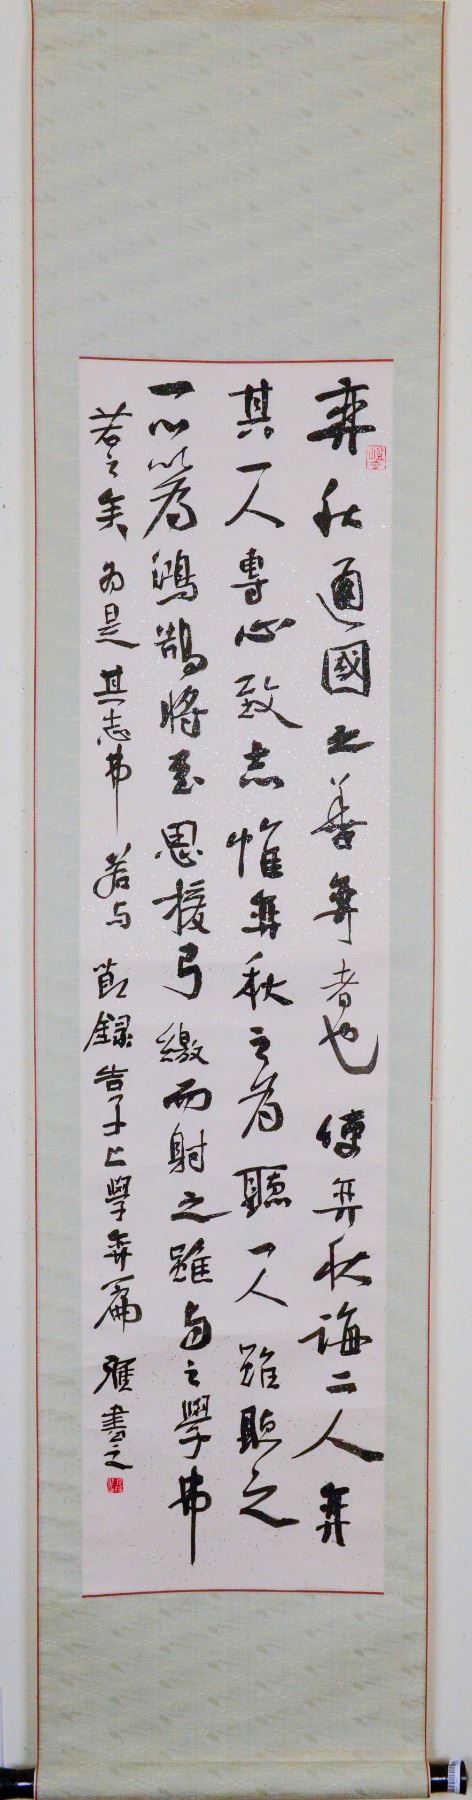 弈秋通國之善弈者也使弈秋誨二人弈
其一人專心致志惟弈秋之為聽一人雖聽之
一心以為鴻鵠將至思援弓繳而射之雖與之學弗
若之矣為是其志弗若与節錄告子上學弈篇 書之